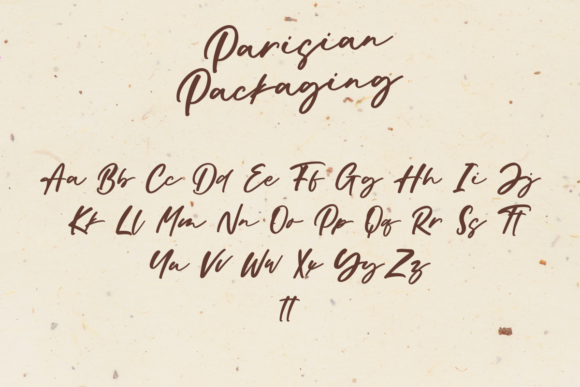 Parisian
Packaging
Aa Bb Cc Dd Ee Ff Gg Hh Ii Jj
Kk Ll Mm Nn Oo Pp Qq Rr Ss Tt
Uu Vv Ww Xx Yy Zz
tt